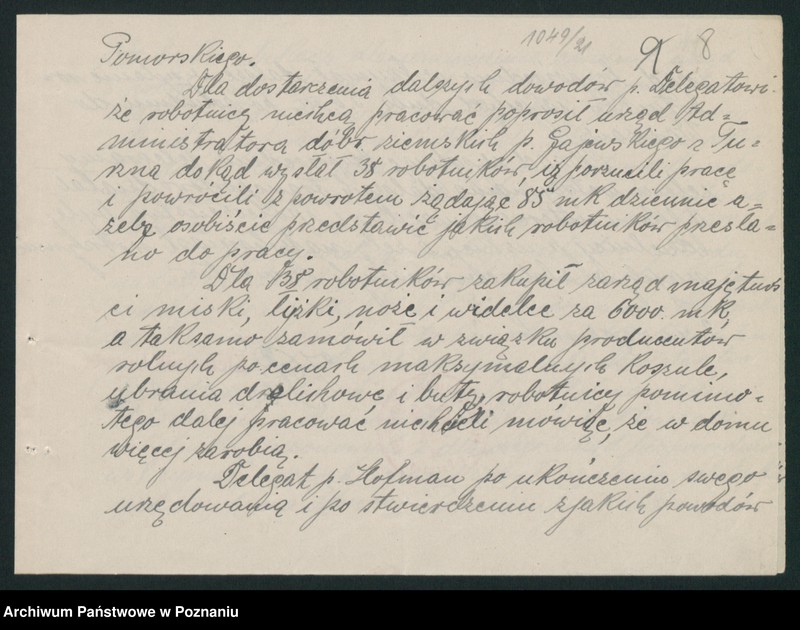 1049/21
9 8
Pomorskiego.
Dla dostarczenia dalszych dowodów p. Delegatowi
że robotnicy niechcą pracować poprosił urząd Ad=
ministratora dóbr ziemskich p. Gajewskiego z Tu=
rzna dokąd wysłał 38 robotników, iż porzucili pracę
i powrócili z powrotem żądając 85 mk dziennie a=
żeby osobiście przedstawić jakich robotników przesła=
no do pracy.
Dla 38 robotników zakupił zarząd majętnoś
ci miski, łiżki, noże i widelce za 6000. mk,
a taksamo zamówił w związku producentów
rolnych po cenach maksymalnych koszule,
ubrania drelichowe i buty, robotnicy pomimo=
tego dalej pracować niechcieli mówiąc, że w domu
więcej zarobią.
Delegat p. Hofman po ukończeniu swego
urzędowania i po stwierdzeniu z jakich powodów
Archiwum Państwowe w Poznaniu